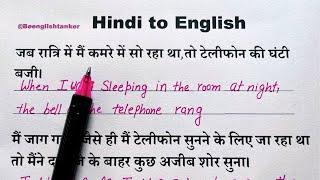 @Beenglishtanker
Hindi to English
जब रात्रि में मैं कमरे में सो रहा था,तो टेलीफोन की घंटी
बजी।
When I Sleeping in the room at night,
the bell of the telephone rang
मैं जाग जैसे ही मैं टेलीफोन सुनने के लिए जा रहा था
तो मैंने के बाहर कुछ अजीब शोर सुना।